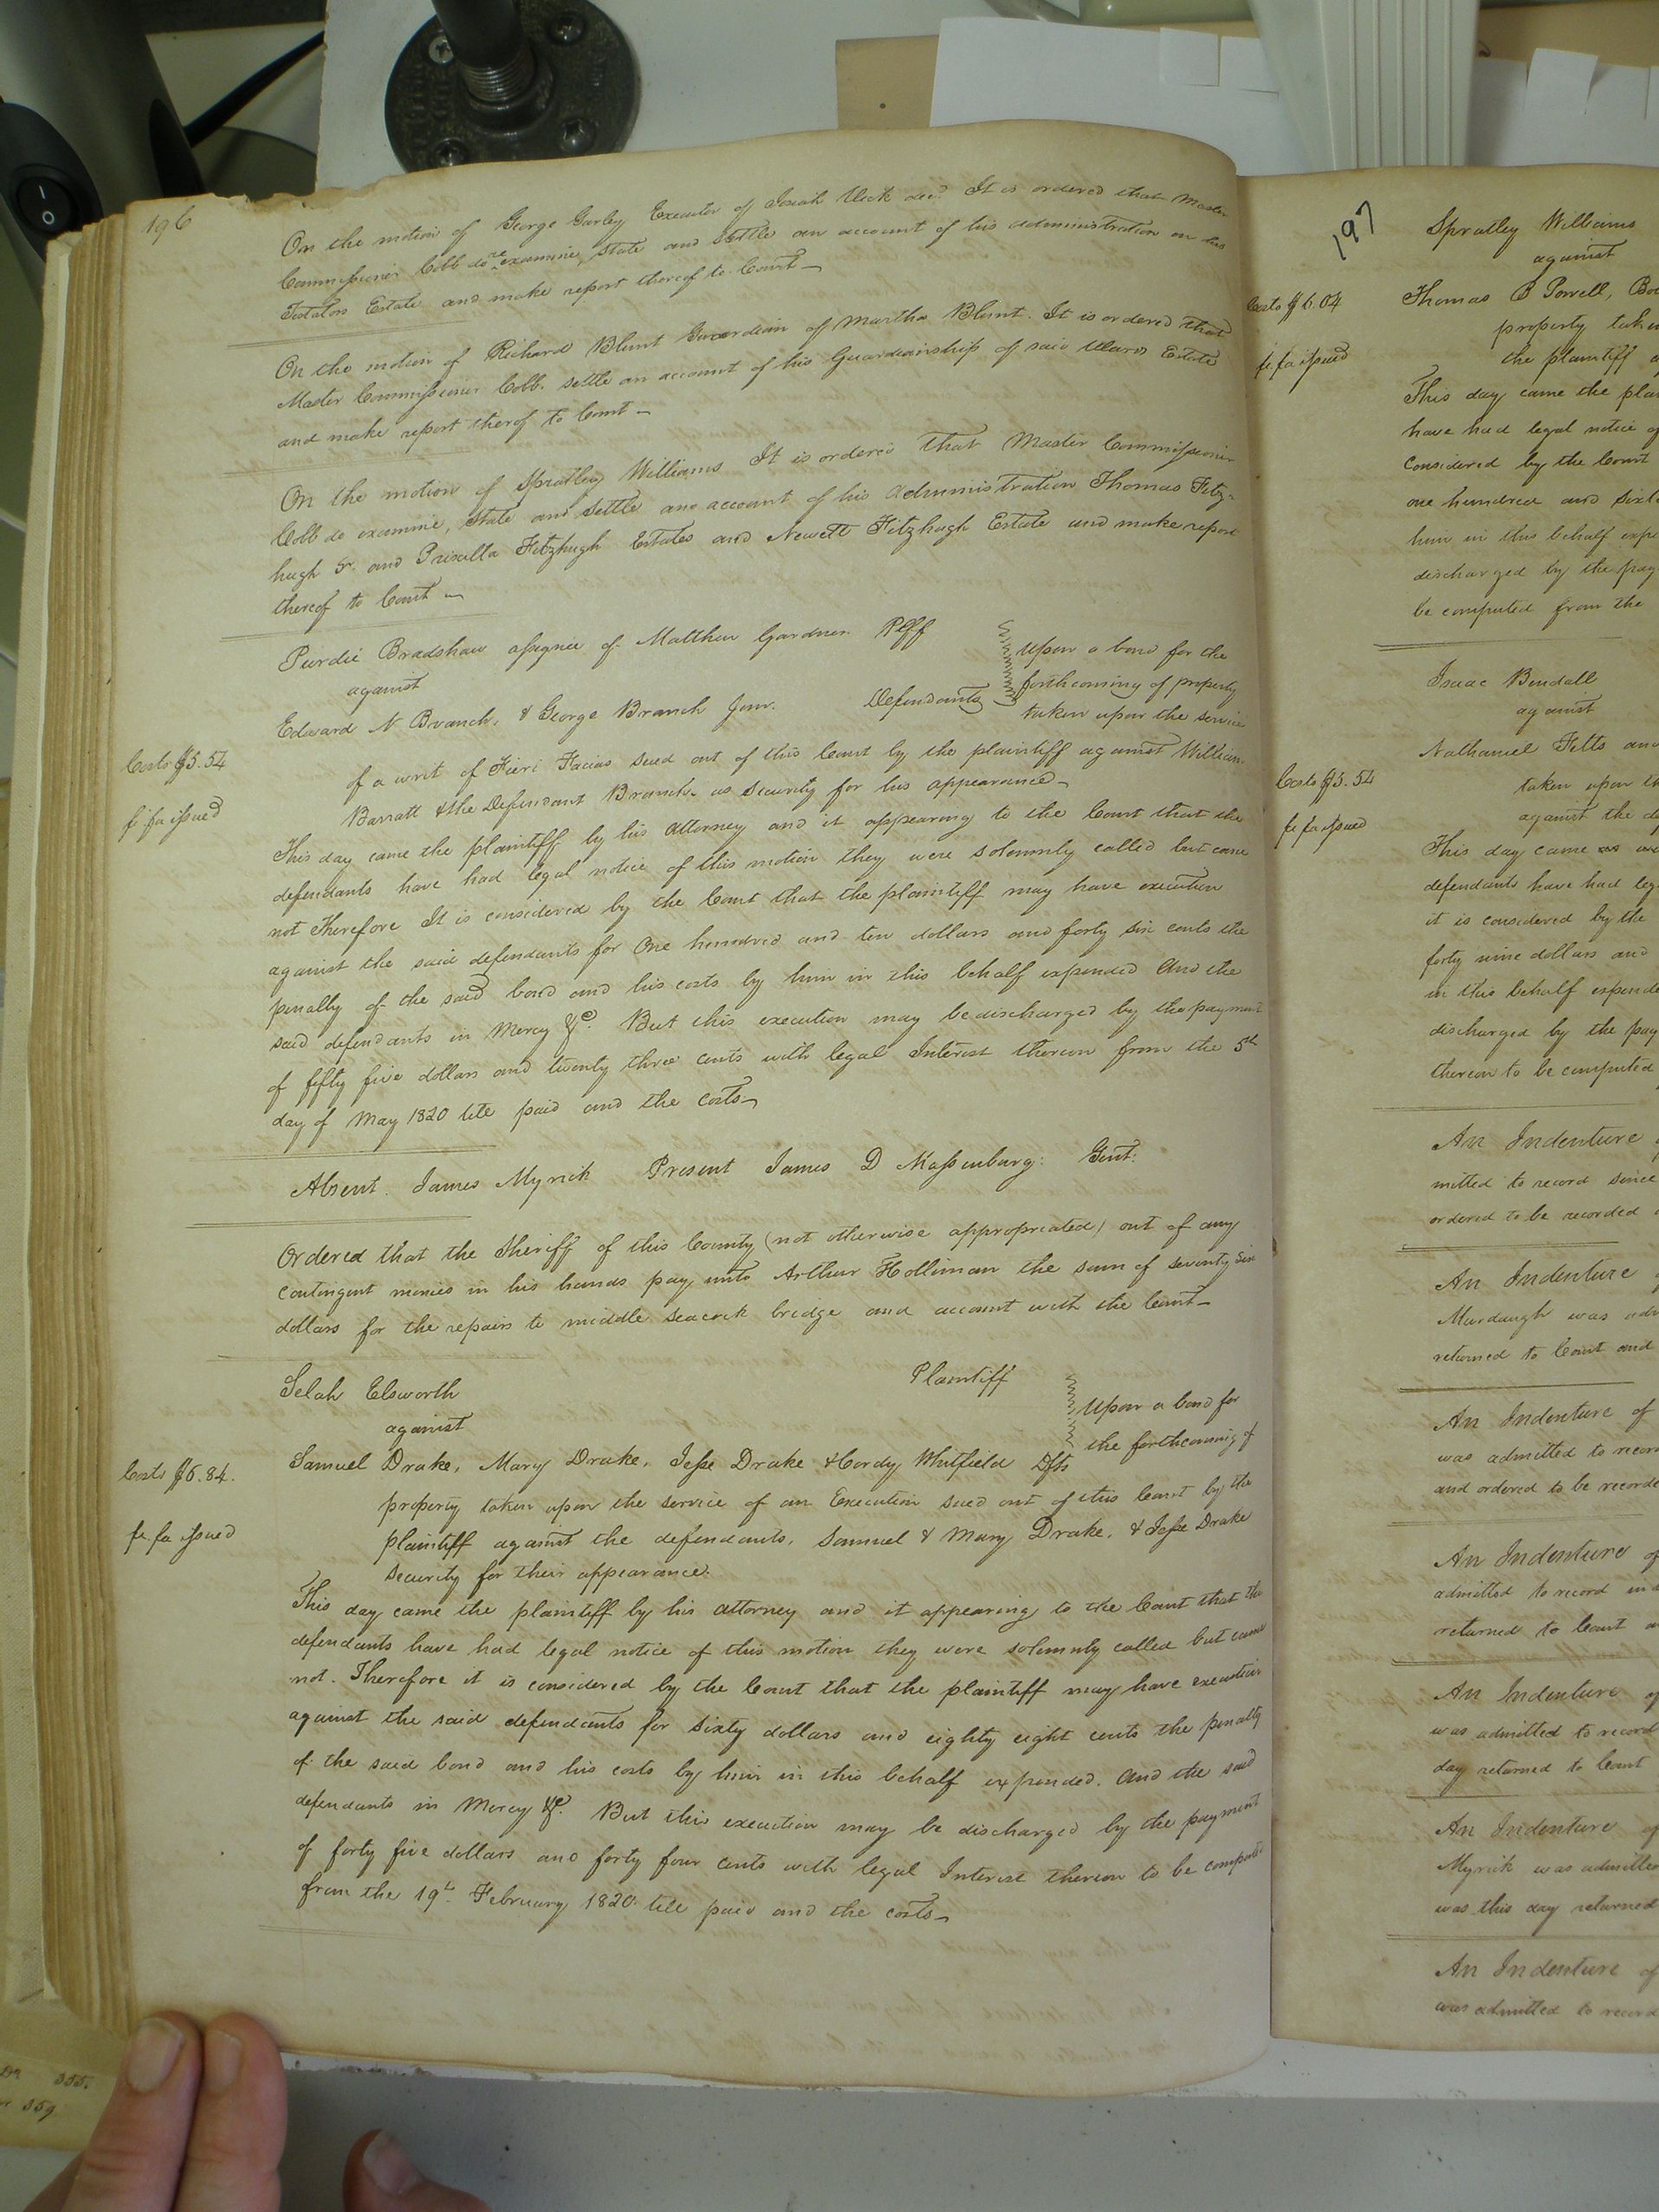 196
On the motion of George Gurley Executor of Josiah decd. It is ordered that Master
Commissioner Cobb do re examine, State and Settle an account of his administration on his
Testators Estate and make report thereof to Court
On the motion of Richard Blunt Guardian of Martha Blunt. It is ordered that
Master Commissioner Cobb. settle an account of his Guardianship of said Wards Estate
and make report thereof to Court
On the motion of Spratley Williams It is ordered that Master Commissioner
Cobb do examine, State and Settle an account of his administration Thomas Fitz-
hugh Sr. and Priscilla Fitzhugh Estates and Newett Fitzhugh Estate and make report
thereof to Court
Purdie Bradshaw assignee of Matthew Gardner Plff
against
Edward N Branch, & George Branch Junr. Defendants
Upon a bond for the
forthcoming of property
taken upon the service
Costs $5.54
fi fa issued
of a writ of Fieri Facias sued out of this Court by the plaintiff against William
Barratt & the Defendant Branch as Security for his appearance
This day came the plaintiff by his attorney and it appearing to the Court that the
defendants have had legal notice of this motion they were solemnly called but came
not Therefore It is considered by the Court that the plaintiff may have execution
against the said defendants for One hundred and ten dollars and forty six cents the
penalty of the said bond and his costs by him in this behalf expended And the
said defendants in Mercy &c. But this execution may be discharged by the payment
of fifty five dollars and twenty three cents with legal Interest thereon from the 5th
day of May 1820 till paid and the costs
Absent James Myrick Present James D Massenburg Gent:
Ordered that the Sheriff of this County (not otherwise appropriated) out of any
contingent monies in his hands pay unto Arthur Holliman the sum of seventy six
dollars for the repairs to middle seacock bridge and account with the Court
Selah Elsworth Plaintiff
against
Samuel Drake, Mary Drake, Jesse Drake & Cordy Whitfield Dfts
Upon a bond for
the forthcoming of
Costs $6.84.
fi fa issued
property taken upon the service of an Execution sued out of this Court by the
plaintiff against the defendants, Samuel & Mary Drake, & Jesse Drake
Security for their appearance.
This day came the plaintiff by his attorney and it appearing to the Court that the
defendants have had legal notice of this motion they were solemnly called but came
not. Therefore it is considered by the Court that the plaintiff may have execution
against the said defendants for Sixty dollars and eighty eight cents the penalty
of the said bond and his costs by him in this behalf expended. And the said
defendants in Mercy &c. But this execution may be discharged by the payment
of forty five dollars and forty four cents with legal Interest thereon to be computed
from the 19th February 1820. till paid and the costs
197
Spratley Williams
against
Costs $6.04
Thomas B Powell,
property taken
fi fa issued
the plaintiff
This day came the
have had legal notice of
Considered by the Court
one hundred and
him in this behalf
discharged by the
be computed from the
Isaac Bendall
against
Nathaniel Felts and
Costs $5.54
taken upon
against the
fi fa issued
This day came
defendants have had
it is considered by the
forty nine dollars and
in this behalf
discharged by the
thereon to be computed
An Indenture
mitted to record since
ordered to be recorded
An Indenture
Murdaugh was
returned to Court and
An Indenture of
was admitted to
and ordered to be
An Indenture of
admitted to record
returned to Court
An Indenture of
was admitted to record
day returned to Court
An Indenture of
Myrick was admitted
was this day returned
An Indenture of
was admitted to record
355.
359